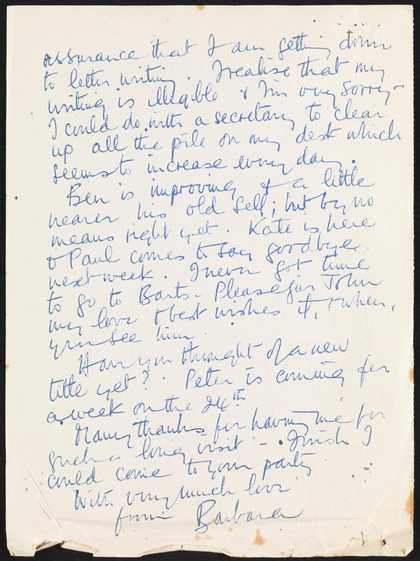 assurance that I am getting down
to letter writing. I realise that my
writing is illegible & I'm very sorry -
I could do with a secretary to clear
up all the pile on my desk which
seems to increase every day.
Ben is improving & a little
nearer his old self; but by no
means right yet. Kate is here
& Paul comes to say goodbye
next week. I never got time
to go to Barts. Please give John
my love & best wishes if, & when,
you see him.
Have you thought of a new
title yet? Peter is coming for
a week on the 24th
Many thanks for having me for
such a long visit - I wish I
could come to your party
With very much love
from Barbara